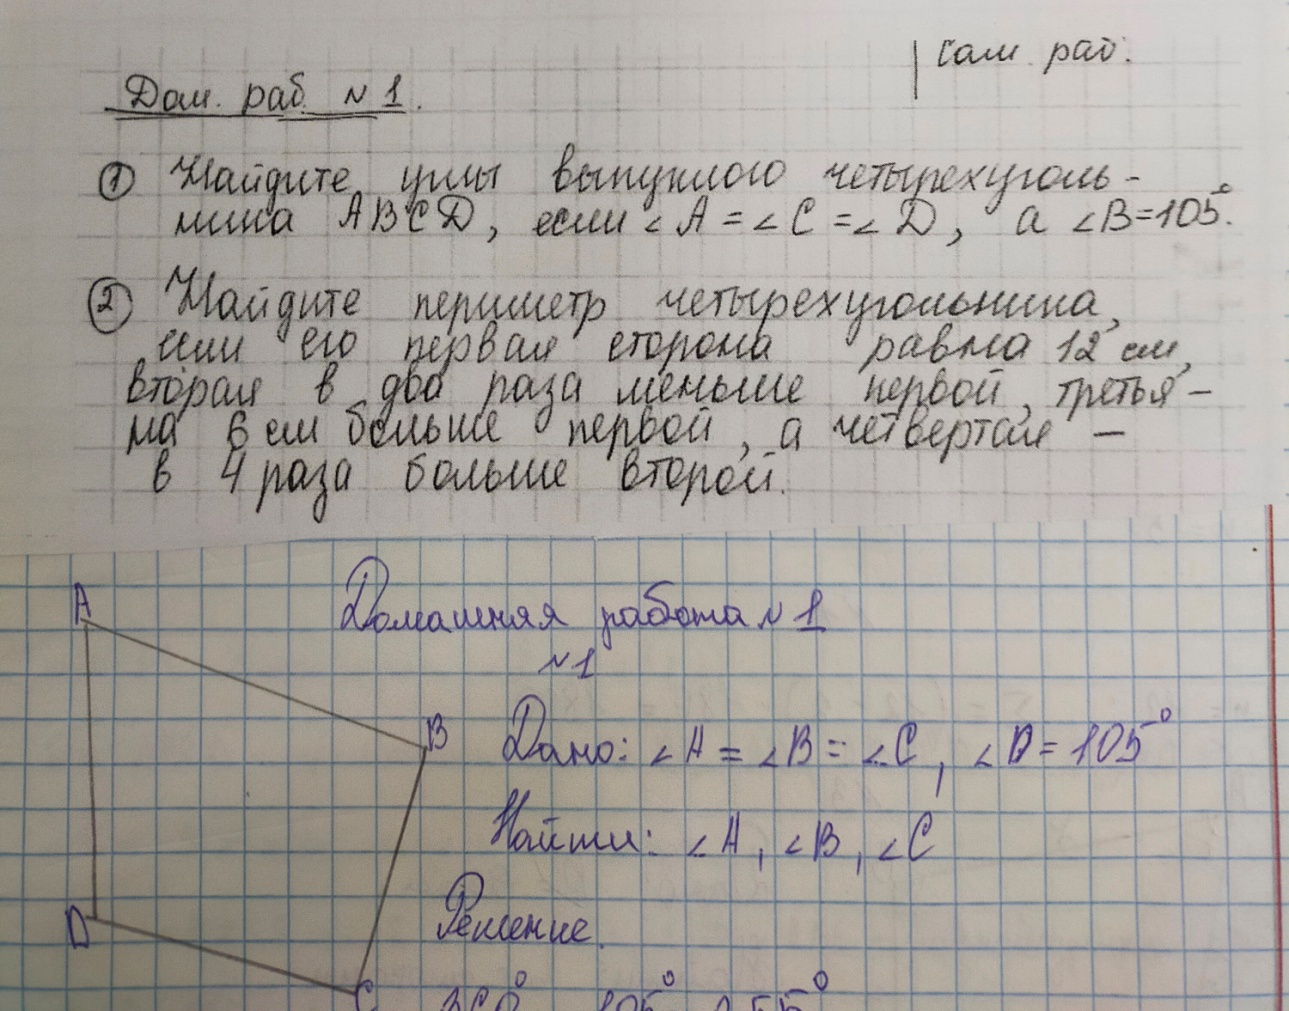 Сам. раб.
Дом. раб. №1.
① Найдите углы выпуклого четырехуголь-
ника ABCD, если ∠A = ∠C = ∠D, а ∠B=105°.
② Найдите периметр четырехугольника,
если его первая сторона равна 12 см,
вторая в два раза меньше первой, третья –
на 6 см больше первой, а четвертая –
в 4 раза больше второй.
A
Домашняя работа №1
№1
B
Дано: ∠A = ∠B = ∠C, ∠D = 105°
Найти: ∠A, ∠B, ∠C
D
Решение.
C
360° - 105° = 255°